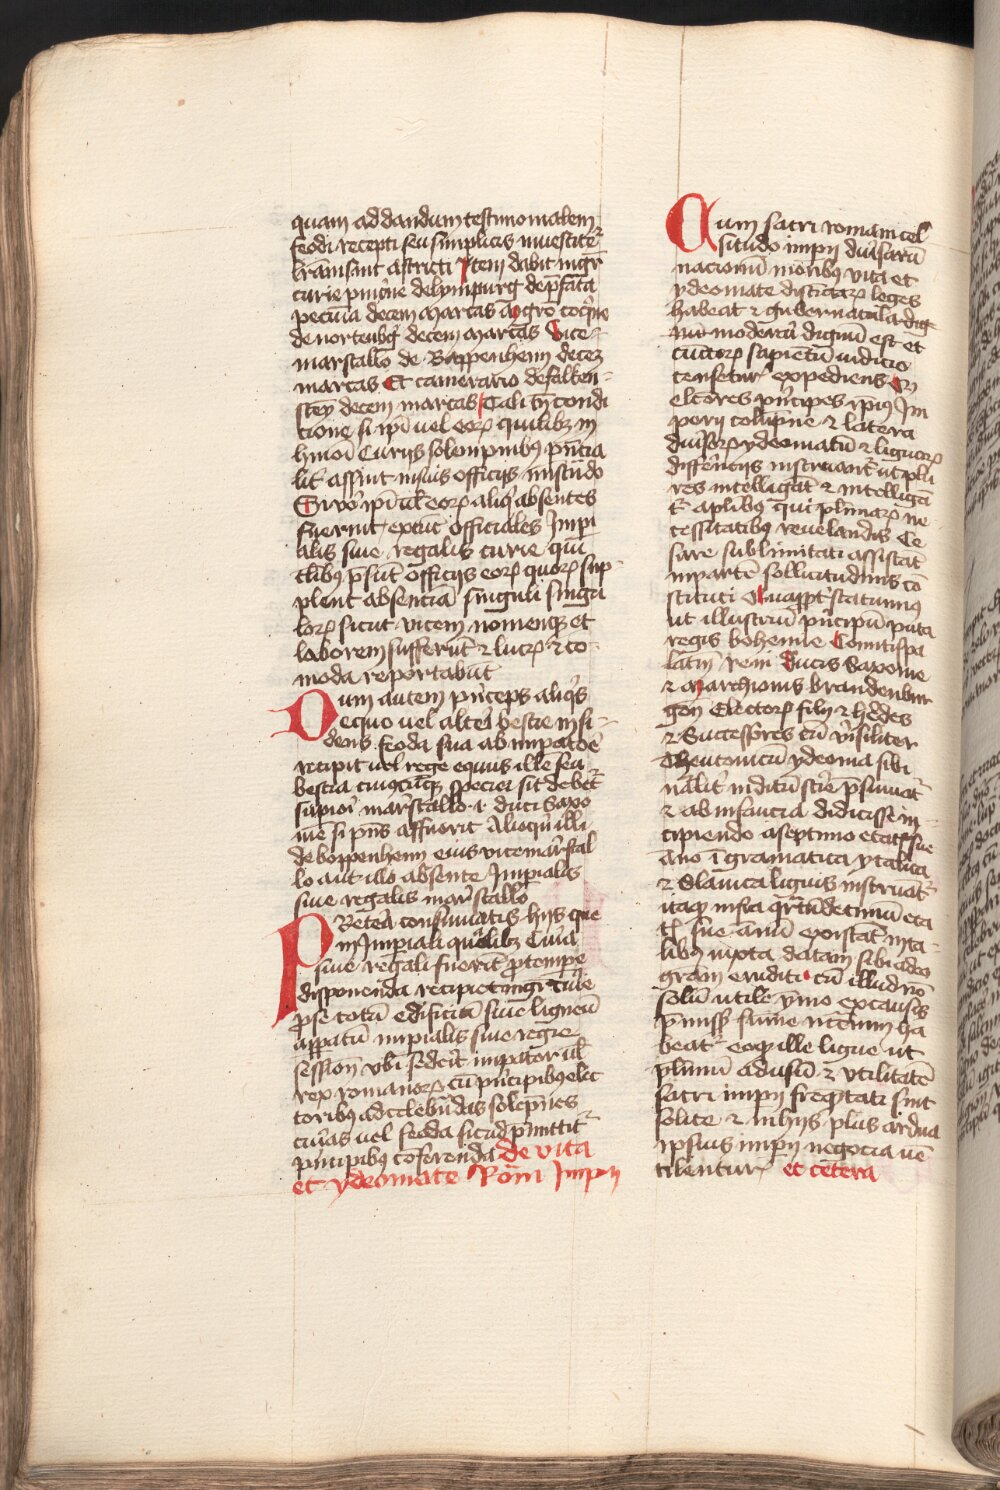 quam ad dandum testimonialem
feodi recepti seu simplicis inuestite
l'ram sint astricti Item dabit mgr̄o
curie pincerne de lympurg de p̄fata
pecunia decem marcas Mgr̄o coq̄ne
de nortenbg decem marcas Vice
marstallo de Bappenheim decez
marcas Et camerario de falken-
steȳ decem marcas Tali tn̄ condi
tione si ip̄i vel eorꝝ quilibꝫ in
hmōi Curijs solempnibus pn̄cia
lit̄ assint in suis officijs ministrādo
Si vero ip̄i ul̄ eorꝝ aliqⁱ absentes
fuerint extūc officiales Imp̄i
alis siue regalis curie qui
tlibꝫ p̄sūt officijs eorꝝ quorꝝ sup-
plent absenciā singuli singu
lorꝝ sicut vicem nomenqꝫ et
laborem sufferūt ⁊ lucrꝝ ⁊ co-
moda reportabūt
Dum autem princeps aliqⁱs
equo uel alteri bestie insi-
dens feoda sua ab imp̄atore
recipit uel rege equus ille seu
bestia cuiuscūqꝫ speciei sit debet̄
sup̄iori marstallo .i. duci Saxo
nie si pn̄s affuerit Alioqⁱn illi
de boppenheim eius vicemarstal
lo aut illo absente Imp̄ialis
siue regalis mar̄stallo
PReterea consūmatis hijs que
in Imp̄iali quelibꝫ Curia
siue regali fuerit p̄ tempore
disponenda recipiet mgr̄ curie
p̄ se totū edificiū siue ligneū
app̄atū imp̄ialis siue regie
session̄ vbi sedeit imp̄ator ul̄
rex romanorꝝ cū pn̄cipibꝫ elec
toribꝫ ad celebrādas solēp̄nes
curias uel feoda sicud p̄mittit̄
principibꝫ cōferenda de vita
et ydeomate Rōm Imp̄ij
Cum sacri romani cel
situdo imp̄ij diuersarū
nacionū moribꝫ vita et
ydeomate distinctarꝝ leges
habeat ⁊ gubernacula dig
nū moderari dignū est et
cunctorꝝ sapientū iudicio
censetur expediens Qn̄
electores pn̄cipes ip̄ius Im
perij collūpne ⁊ latera
diuersorꝝ ydeomatū ⁊ liguarꝝ
differencijs instruant̄ ut plu
res intelligāt ⁊ intelligāt̄
a plibꝫ qui plimarꝝ ne
cessitatibꝫ reuelandis Ce
saree sublimitati assistāt
in partē sollicitudinis cō
stituti Quapp̄t̄ statuimꝰ
ut illustriū principū puta
regis bohemie Comitispa
latin̄ reni Ducis Saxonie
⁊ Marchionis brandenbur
gen̄ Electorꝝ filij ⁊ hēdes
⁊ Successores cū v̄isilit̄er
Theutonicū ydeoma sibi
nālit̄ inditū scire p̄sumāt̄
⁊ ab infancia didicisse in-
cipiendo a septimo etatis sue
āno ī gramatica ytalica
⁊ Slauica liguis instruāt̄
itaqꝫ infra qr̄tūdecimū eta
tis sue annū existāt̄ in ta-
libꝫ iuxta datam sibi a deo
grām eruditi cū illud nō
solū utile ymo ex causis
p̄missis sūme nccm̄ium ha
beat̄ eoqꝫ ille ligue ut
plimū ad usū ⁊ utilitatē
sacri imp̄ij freq̄ntari sint
solite ⁊ in hijs plus ardua
ipsius imp̄ij negocia uē
tilentur et cetera